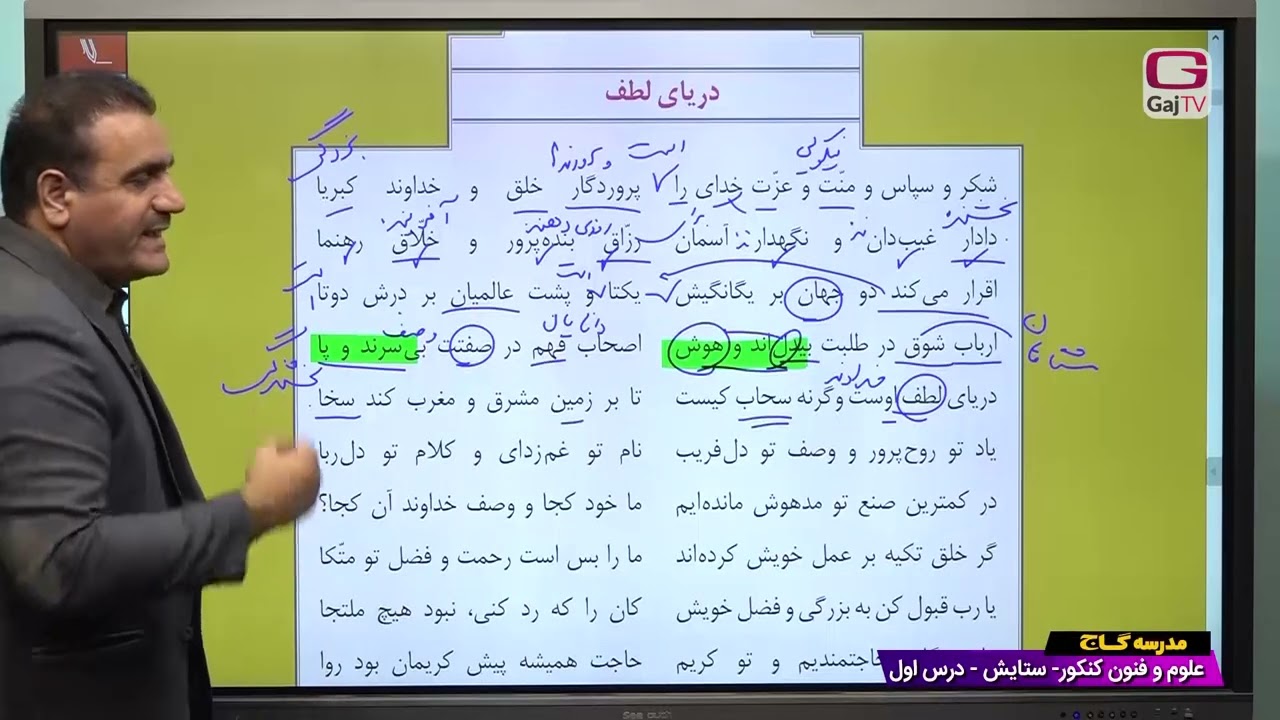 GajTV
دریای لطف
شکر و سپاس و منّت و عزّت خدای را پروردگار خلق و خداوند کبریا
دادار غیب‌دان و نگهدار آسمان رزّاق بنده‌پرور و خلّاق رهنما
اقرار می‌کند دو جهان بر یگانگیش یکتا و پشت عالمیان بر درش دوتا
ارباب شوق در طلبت بیدل‌اند و هوش اصحاب فهم در صفتت بی‌سرند و پا
دریای لطف اوست وگرنه سحاب کیست تا بر زمین مشرق و مغرب کند سخا
یاد تو روح‌پرور و وصف تو دل‌فریب نام تو غم‌زدای و کلام تو دل‌ربا
در کمترین صنع تو مدهوش مانده‌ایم ما خود کجا و وصف خداوند آن کجا؟
گر خلق تکیه بر عمل خویش کرده‌اند ما را بس است رحمت و فضل تو متّکا
یا رب قبول کن به بزرگی و فضل خویش کان را که رد کنی، نبود هیچ ملتجا
حاجتمندیم و تو کریم حاجت همیشه پیش کریمان بود روا
بزرگی
است
نیکویی
مدرسه گاج
علوم و فنون کنکور- ستایش - درس اول